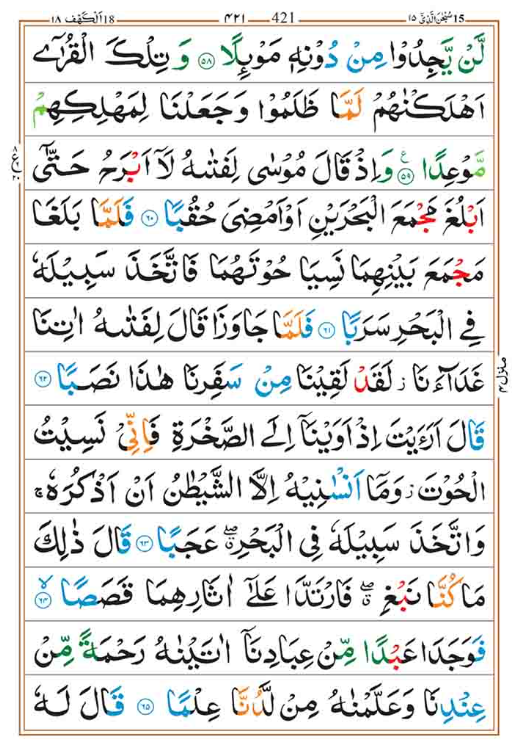 15 سُبْحٰنَ الَّذِيْ ١٥ 421 ٤٢١ 18 اَلْكَهْف ١٨
لَّنْ يَّجِدُوْا مِنْ دُوْنِهٖ مَوْئِلًا ۝٥٨ وَ تِلْكَ الْقُرٰٓى
اَهْلَكْنٰهُمْ لَمَّا ظَلَمُوْا وَجَعَلْنَا لِمَهْلِكِهِمْ
مَّوْعِدًا ۝٥٩ ع وَاِذْ قَالَ مُوْسٰى لِفَتٰىهُ لَاۤ اَبْرَحُ حَتّٰۤى
اَبْلُغَ مَجْمَعَ الْبَحْرَيْنِ اَوْ اَمْضِيَ حُقُبًا ۝٦٠ فَلَمَّا بَلَغَا
مَجْمَعَ بَيْنِهِمَا نَسِيَا حُوْتَهُمَا فَاتَّخَذَ سَبِيْلَهٗ
فِي الْبَحْرِ سَرَبًا ۝٦١ فَلَمَّا جَاوَزَا قَالَ لِفَتٰىهُ اٰتِنَا
غَدَآءَنَا ز لَقَدْ لَقِيْنَا مِنْ سَفَرِنَا هٰذَا نَصَبًا ۝٦٢
قَالَ اَرَءَيْتَ اِذْ اَوَيْنَاۤ اِلَى الصَّخْرَةِ فَاِنِّيْ نَسِيْتُ
الْحُوْتَ ز وَمَاۤ اَنْسٰنِيْهُ اِلَّا الشَّيْطٰنُ اَنْ اَذْكُرَهٗ ۚ
وَاتَّخَذَ سَبِيْلَهٗ فِي الْبَحْرِ ۖ عَجَبًا ۝٦٣ قَالَ ذٰلِكَ
مَا كُنَّا نَبْغِ ۖ فَارْتَدَّا عَلٰۤى اٰثَارِهِمَا قَصَصًا ۝٦٤ لا
فَوَجَدَا عَبْدًا مِّنْ عِبَادِنَاۤ اٰتَيْنٰهُ رَحْمَةً مِّنْ
عِنْدِنَا وَعَلَّمْنٰهُ مِنْ لَّدُنَّا عِلْمًا ۝٦٥ قَالَ لَهٗ